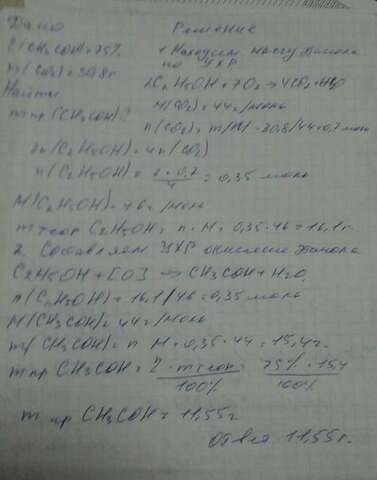 Дано Решение
η(CH3COH)=75% 1 Находим массу этанола
m(CO2)=30,8г по УХР
Найти 2C2H5OH+7O2→4CO2+H2O
m пр(CH3COH)? M(CO2)=44г/моль
n(CO2)=m/M=30,8/44=0,7 моль
2n(C2H5OH)=4n(CO2)
n(C2H5OH)=2·0,7/4=0,35 моль
M(C2H5OH)=46г/моль
m теор C2H5OH=n·M=0,35·46=16,1г
2. Составляем УХР окисление этанола
C2H5OH+[O]→CH3COH+H2O
n(C2H5OH)=16,1/46=0,35 моль
M(CH3COH)=44г/моль
m(CH3COH)=n M=0,35·44=15,4г
m пр CH3COH=η·m теор/100%=75%·154/100%
m пр CH3COH=11,55г
Ответ 11,55г.